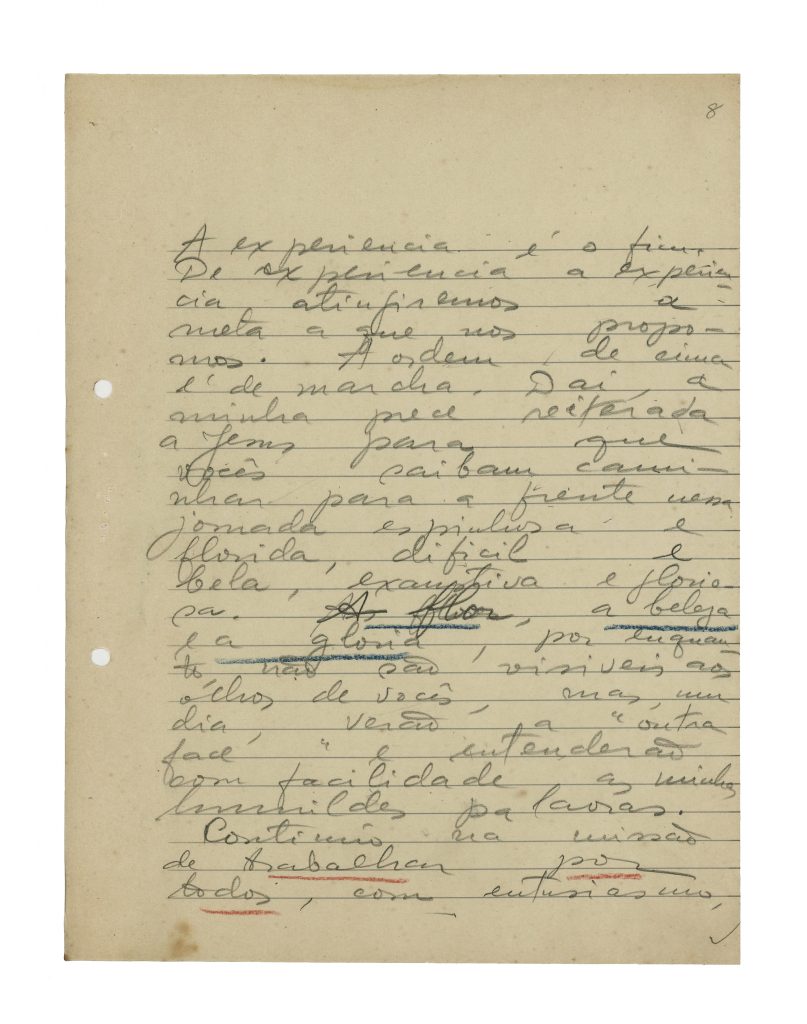 8
A experiencia é o fim.
De experiencia a experien
cia atingiremos a
meta a que nos propo-
mos. A ordem de cima
é de marcha. Daí, a
minha prece reiterada
a Jesus para que
vocês saibam cami-
nhar para a frente nessa
jornada espinhosa e
florida, dificil e
bela, exaustiva e glorio-
sa. As flor, a beleza
e a gloria, por enquan-
to, não são visiveis aos
olhos de vocês, mas, um
dia, verão a "outra
face" e entenderão
com facilidade as minhas
humildes palavras.
Continúo na missão
de trabalhar por
todos, com entusiasmo,